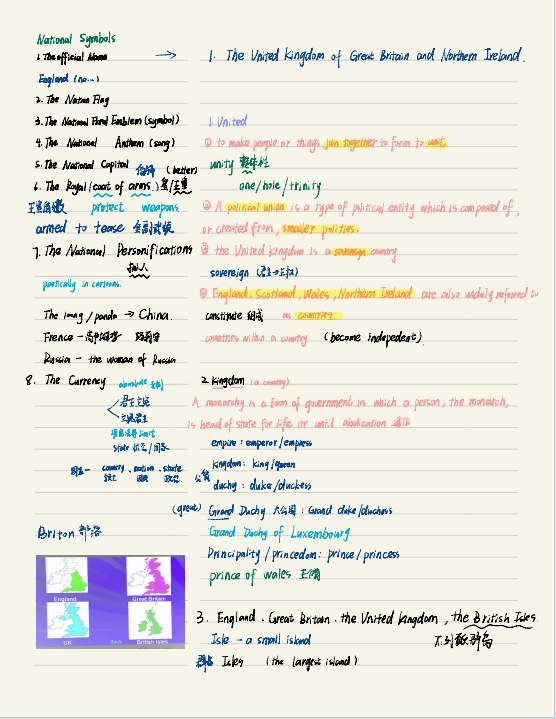 National Symbols
1. The official Name → 1. The United Kingdom of Great Britain and Northern Ireland.
England (no...)
2. The Nation Flag
3. The National Floral Emblem (symbol)
1. United
4. The National Anthem (song)
① to make people or things join together to form to unit
5. The National Capital 伦敦 (better)
unity 整体性
6. The Royal (coat of arms)
one/hole/trinity
protect weapons
② A political union is a type of political entity which is composed of,
armed to tease 全副武装
or created from, smaller polities.
7. The National Personifications
③ the United Kingdom is a sovereign country
拟人
sovereign (君主→主权)
partically in cartoons.
④ England, Scotland, Wales, Northern Ireland are also widely referred to
The loong/panda → China.
constitute 组成 as countries.
Frence -
countries within a country (become indepedent)
Russia - the woman of Russia
8. The Currency
absolute 绝对
2. Kingdom (a country)
君主立宪
A monarchy is a form of government in which a person, the monarch,
is head of state for life or until abdication 退位
limit
empire: emperor/empress
state 状态/国家
国家- country, nation, state
kingdom: king/queen
duchy: duke/duckess
(great) Grand Duchy 大公国: Grand duke/duchess
Briton 部落
Grand Duchy of Luxembourg
Principality/princedom: prince/princess
prince of wales 王储
England
Great Britain
UK
Back
British Isles
3. England. Great Britain. the United Kingdom, the British Isles
Isle - a small island
不列颠群岛
群岛 Isles (the largest island)